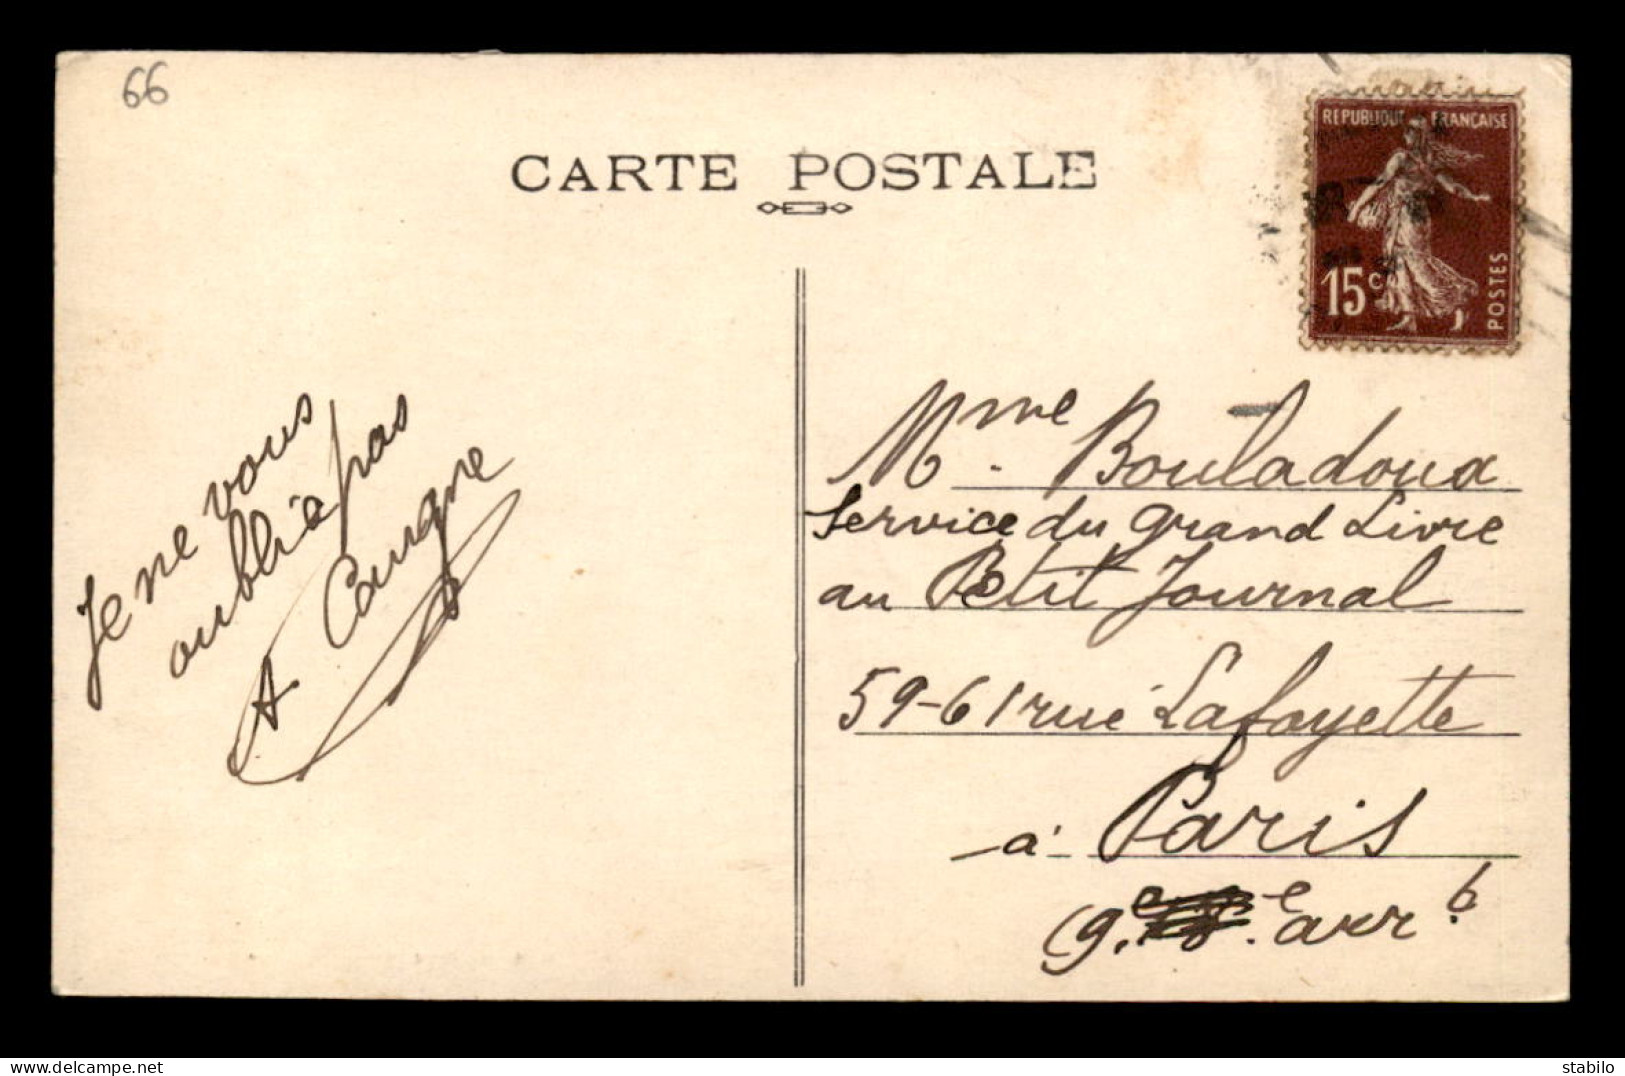 66
CARTE POSTALE
REPUBLIQUE FRANÇAISE
15c
POSTES
Je ne vous
oublie pas
A Caugne
Mme. Bouladoux
Service du grand Livre
au Petit Journal
59-61 rue Lafayette
à Paris
9.e arrt
delcampe.net
stabilo